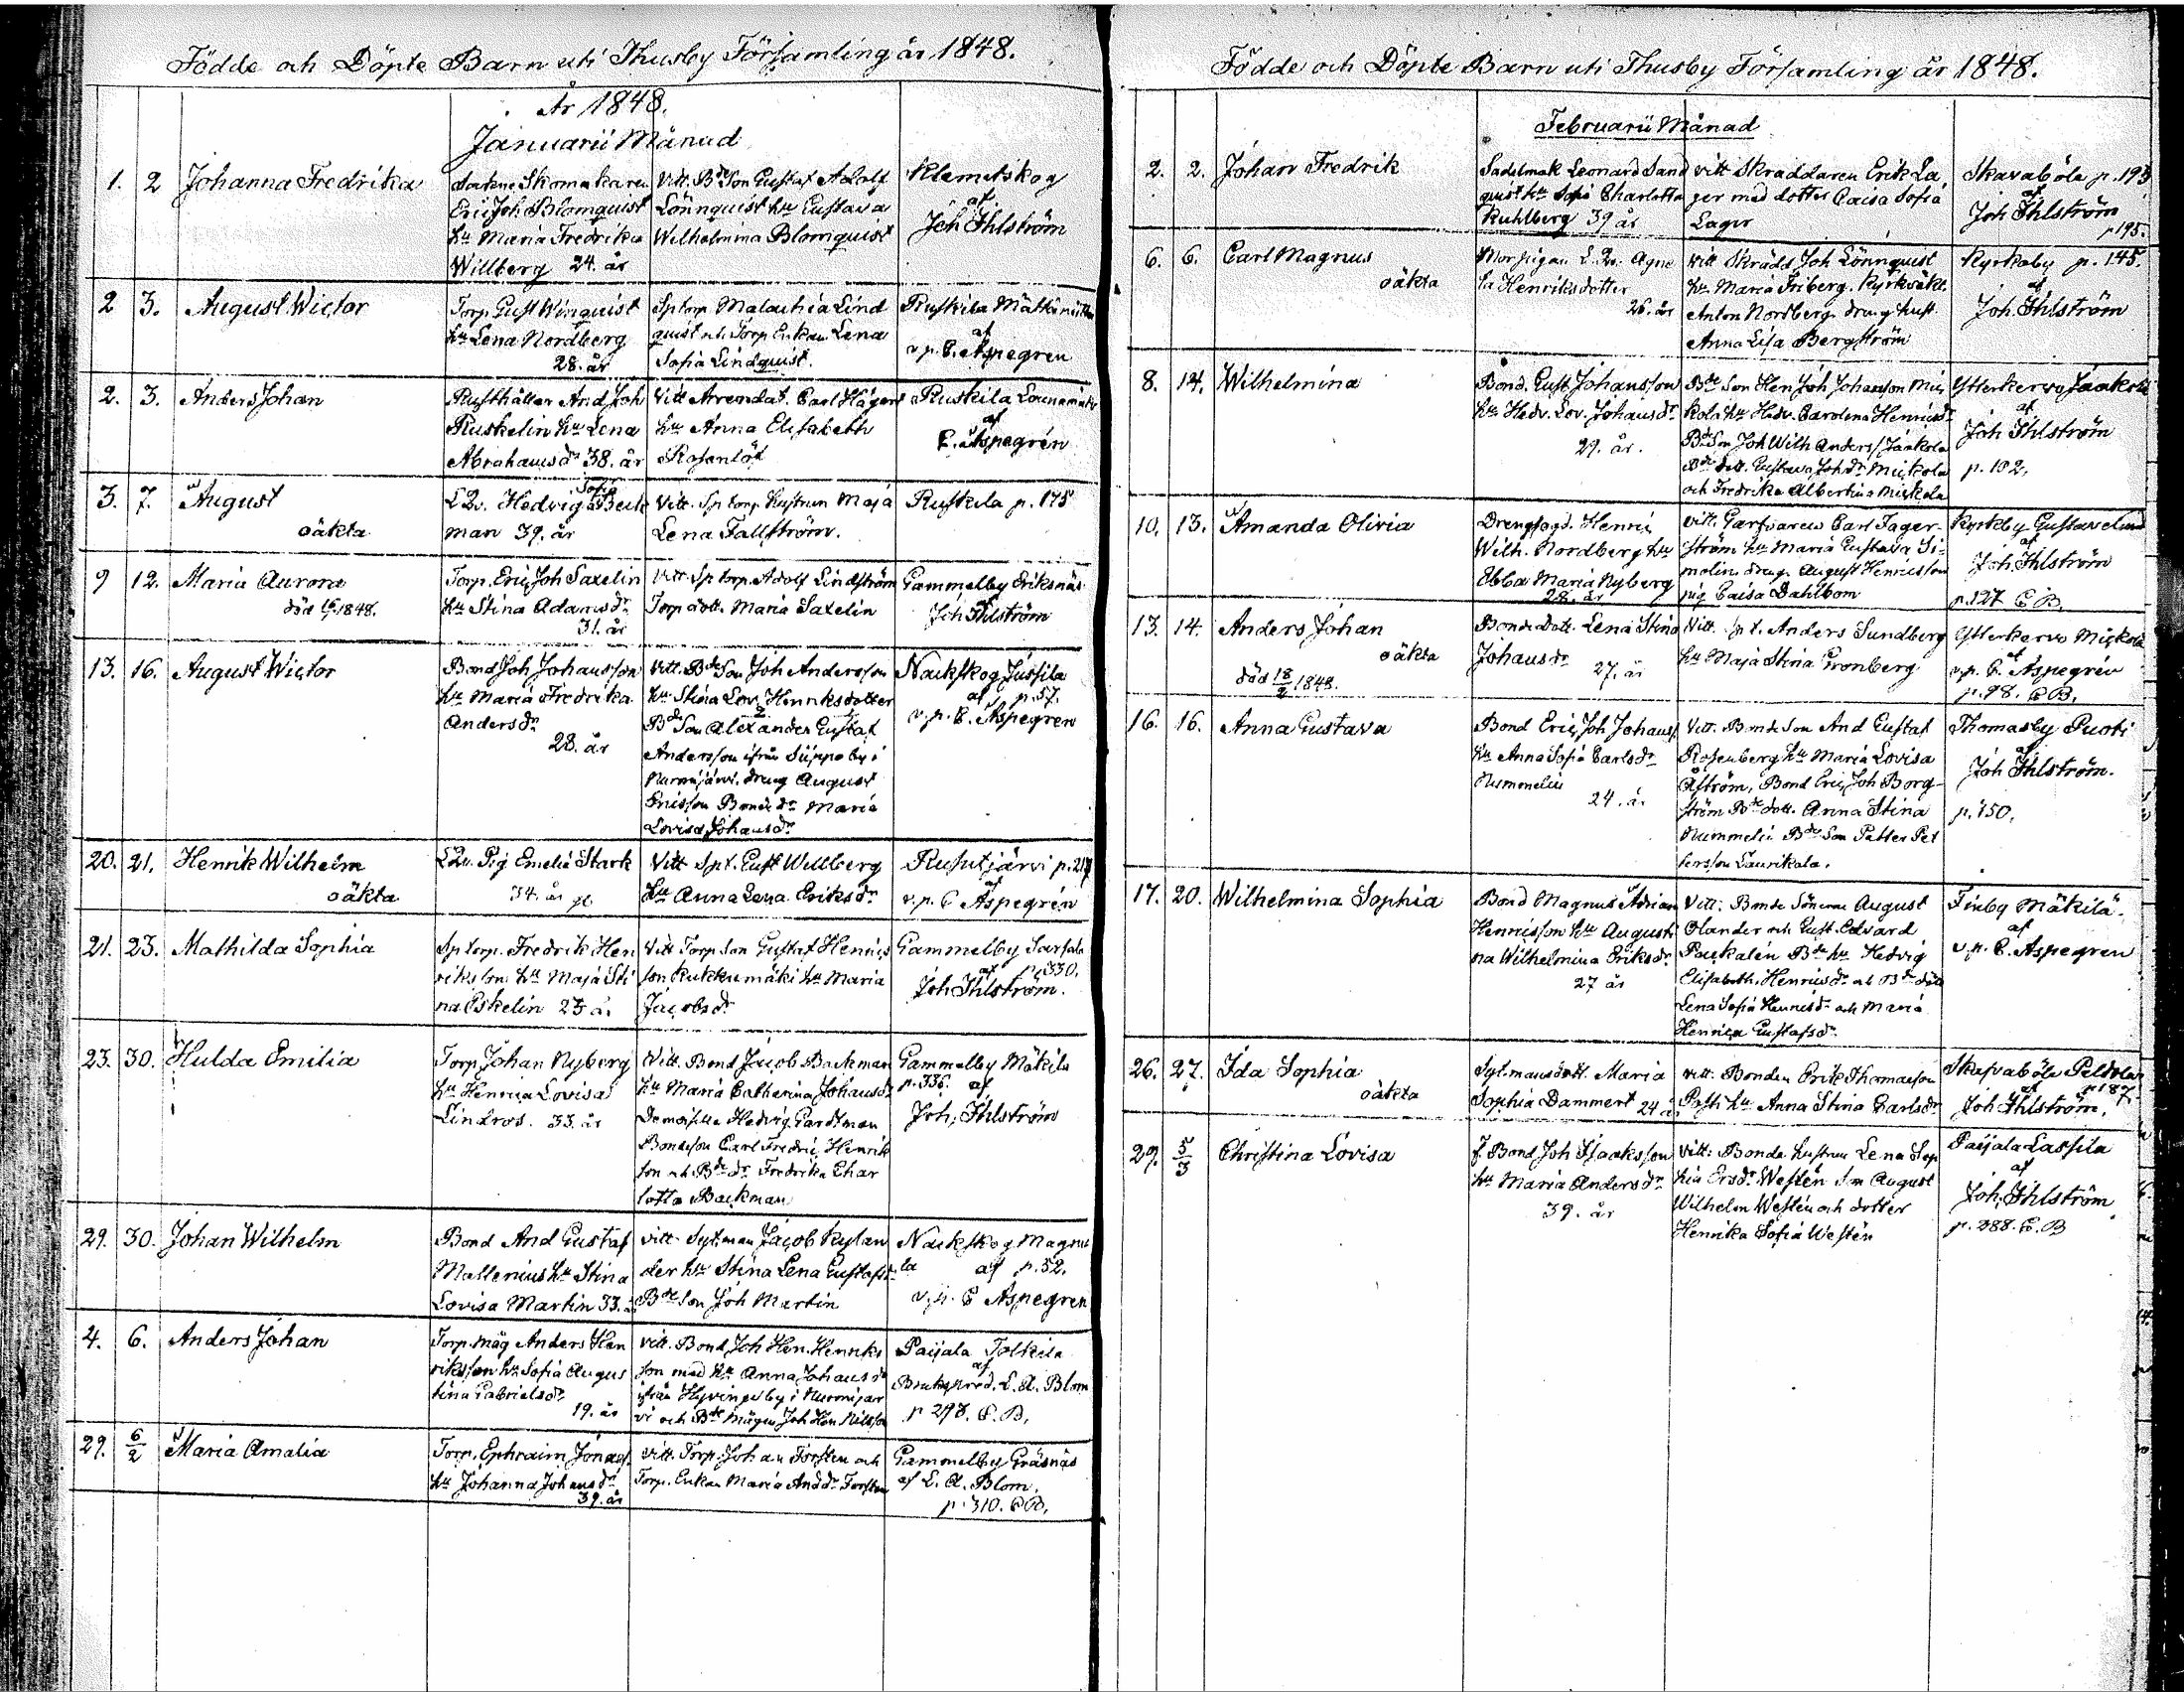 Födde och Döpte Barn uti Thusby Församling år 1848.
År 1848.
Januarii Månad
1. 2 Johanna Fredrika
Sockne Skomakaren
Eric Joh Blomquist
hu Maria Fredrika
Willberg 24. år
Vitt. Bde Son Gustaf Adolf
Lönnquist hu Gustava
Wilhelmina Blomquist
Klemetskog
af
Joh Ihlström
2 3. August Wictor
Torp. Gust Winquist
hu Lena Nordberg
28. år
Sp torp Malachia Lind
quist och Torp Enkan Lena
Sofia Lindquist.
Ruskila
af
v. p. E. Aspegren
2. 3. Anders Johan
Rusthåller And Joh
Ruskelin hu Lena
Abrahamsdr 38. år
Vitt Arrendat. Carl Häger
hu Anna Elisabeth
Rosenlöf
Ruskila
af
E. Aspegrén
3. 7. August
oäkta
Hedvig Sofia Beck
man 39. år
Vitt. Sp torp hustrun Maja
Lena Fallström.
Ruskila p. 175
9 12. Maria Aurora
död 1848.
Torp. Eric Joh Saxelin
hu Stina Adamsdr
31. år
Vitt. Sp torp. Adolf Lindström
Torp dott. Maria Saxelin
Gammelby Eriksnäs
af
Joh Ihlström
13. 16. August Wictor
Bond Joh Johansson
hu Maria Fredrika
Andersdr
28. år
Vitt. Bde Son Joh Andersson
hu Stina Lov. Henriksdotter
Bde Son Alexander Gustaf
Andersson ifrån Siippoby i
Nurmijärvi. dreng August
Ericsson Bonde dr Maria
Lovisa Johansdr
Nackskog Jussila
af p. 57.
v. p. E. Aspegren
20. 21. Henrik Wilhelm
oäkta
Pig Emelia Stark
34. år
Vitt Spt. Gust Willberg
hu Anna Lena Eriksdr
Rusutjärvi p. 217
af
v. p. E Aspegrén
21. 23. Mathilda Sophia
Sp torp. Fredrik Hen
riksson hu Maja Sti
na Eskelin 23 år
Vitt Torp. Son Gustaf Henrics
son Kukkumäki hu Maria
Jacobsdr
Gammelby
af p. 330.
Joh Ihlström.
23. 30. Hulda Emilia
Torp Johan Nyberg
hu Henrica Lovisa
Lindros. 33. år
Vitt. Bond Jacob Backman
hu Maria Catharina Johansdr
Demoiselle Hedvig Gardtman
Bondeson Carl Fredric Henrik
son och Bde dr Fredrika Char
lotta Backman
Gammelby Mäkilä
p. 336. af
Joh. Ihlström
29. 30. Johan Wilhelm
Bond And Gustaf
Mallenius hu Stina
Lovisa Martin 33. år
vitt. Sytman Jacob Kylan
der hu Stina Lena Gustafsdr
Bde Son Joh Martin
Nackskog Magnu
la af p. 52.
v. p. E Aspegren
4. 6. Anders Johan
Torp. måg Anders Hen
riksson hu Sofia Augus
tina Gabrielsdr
19. år
vitt. Bond Joh Hen. Henriks
son med hu Anna Johansdr
ifrån Hyvingeby i Nurmijär
vi och Bde mågen Joh Hen Nilsson
Paijala Tolkila
af
Bruks pred. L. A. Blom
p 298. E. B.
29. 6/2 Maria Amalia
Torp. Ephraim Jonass
hu Johanna Johansdr
39. år
vitt. Torp. Johan Forsten och
Torp. Enkan Maria Andsdr Forsten
Gammelby Gräsnäs
af L. A. Blom.
p. 310. E B.
Födde och Döpte Barn uti Thusby Församling år 1848.
Februarii Månad
2. 2. Johan Fredrik
Sadelmak Leonard Sand
quist hu Sofia Charlotta
Kuhlberg 39 år
vitt Skräddaren Erik La
ger med dotter Caisa Sofia
Lager
Skavaböle p. 193
af
Joh Ihlström
p 195.
6. 6. Carl Magnus
oäkta
Agne
ta Henriksdotter
26. år
vitt Skrädd. Joh Lönnquist
hu Maria Friberg. Kyrkväkt.
Anton Nordberg. dreng hust.
Anna Lisa Bergström
Kyrkoby p. 145.
af
Joh. Ihlström
8. 14. Wilhelmina
Bond. Gust Johansson
hu Hedv. Lov. Johansdr
29. år.
Bde Son Hen Joh Johansson Mic
kola hu Hedv. Carolina Henricsdr
Bde Son Joh Wilh Anders/ Jaakola
Bde dott. Gustava Johsdr Mickola
och Fredrika Albertina Mickola
Ytterkervo Jaakola
af
Joh Ihlström
p. 102.
10. 13. Amanda Olivia
Drengfogd. Henric
Wilh. Nordberg hu
Ebba Maria Nyberg
28. år
vitt. Garfvaren Carl Fager-
ström hu Maria Gustava Si-
molin dreng August Henricsson
pig Caisa Dahlbom
Kyrkby Gustavelund
af
Joh. Ihlström
p. 127 E B.
13. 14. Anders Johan
oäkta
död 18/2 1848.
Bonde Dott. Lena Stina
Johansdr
27. år
Vitt. Sp t. Anders Sundberg
hu Maja Stina Gronberg
Ytterkervo Mickola
af
v. p. E. Aspegrén
p. 98. E B.
16. 16. Anna Gustava
Bond Eric Joh Johanss
hu Anna Sofia Carlsdr
Nummelin
24. år
Vitt. Bonde Son And Gustaf
Rosenberg hu Maria Lovisa
Åström, Bond Eric Joh Borg-
ström Bde dott. Anna Stina
Nummelin Bde Son Petter Pet
tersson Laurikala.
Thomasby Puoti
af
Joh Ihlström.
p. 150.
17. 20. Wilhelmina Sophia
Bond Magnus Adrian
Henricsson hu Augusti
na Wilhelmina Eriksdr
27 år
Vitt: Bonde Sönerne August
Olander och Gust. Edvard
Packalén Bde hu Hedvig
Elisabeth Henricsdr och Bde dött
Lena Sofia Henricsdr och Maria
Henrica Gustafsdr
Finby Mäkilä.
af
v. p. E. Aspegren
26. 27. Ida Sophia
oäkta
Sytmans dott. Maria
Sophia Dammert 24 år
vitt: Bonden Erik Thomasson
Pasti hu Anna Stina Carlsdr
Skafvaböle Peldola
af p 187.
Joh Ihlström.
29. 5/3 Christina Lovisa
f. Bond Joh Isaaksson
hu Maria Andersdr
39. år
vitt: Bonde hustrun Lena Sop
hia Ersdr Westén Son August
Wilhelm Westén och dotter
Henrika Sofia Westén
Paijala Lassila
af
Joh. Ihlström
p. 288. E. B